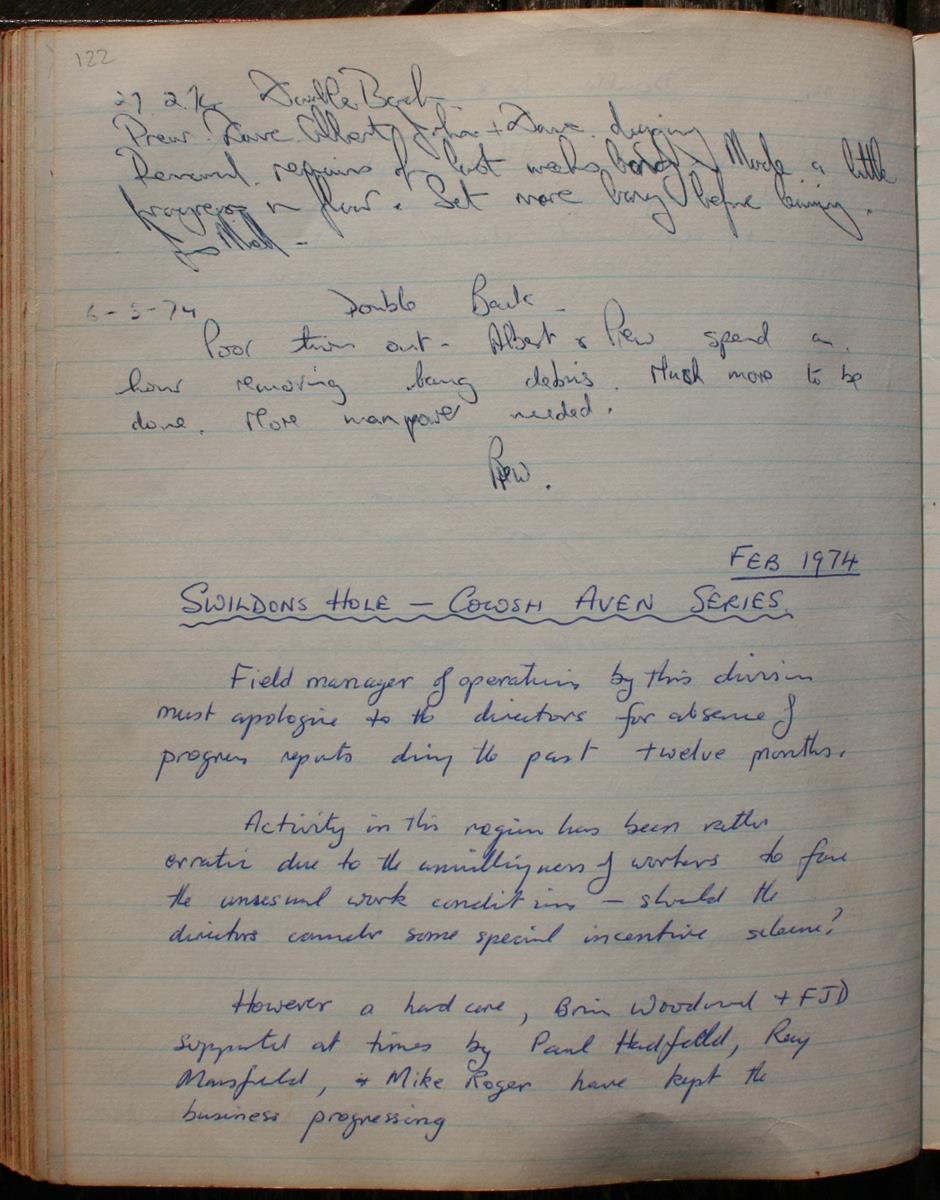 122
Double Back
Prew. Dave. Albert, John + Dave. digging
Removed remains of last weeks bang. Made a little
progress in floor. Set more bang before leaving.
6-3-74 Double Back -
Poor turn out - Albert & Prew spend an
hour removing bang debris. Much more to be
done. More manpower needed.
Prew.
FEB 1974
SWILDONS HOLE — COWSH AVEN SERIES.
Field manager of operations by this division
must apologise to the directors for absence of
progress reports during the past twelve months.
Activity in this region has been rather
erratic due to the unwillingness of workers to face
the unusual work conditions — should the
directors consider some special incentive scheme?
However a hard core, Brian Woodward + FJD
supported at times by Paul Hadfield, Ray
Mansfield, & Mike Roger have kept the
business progressing